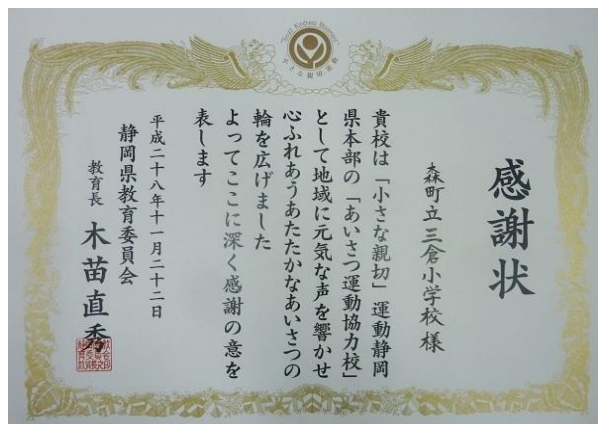 "Small Kindness Movement"
小さな親切運動
感謝状
森町立三倉小学校様
貴校は「小さな親切」運動静岡
県本部の「あいさつ運動協力校」
として地域に元気な声を響かせ
心ふれあうあたたかなあいさつの
輪を広げました
よってここに深く感謝の意を
表します
平成二十八年十一月二十二日
静岡県教育委員会
教育長 木苗直秀